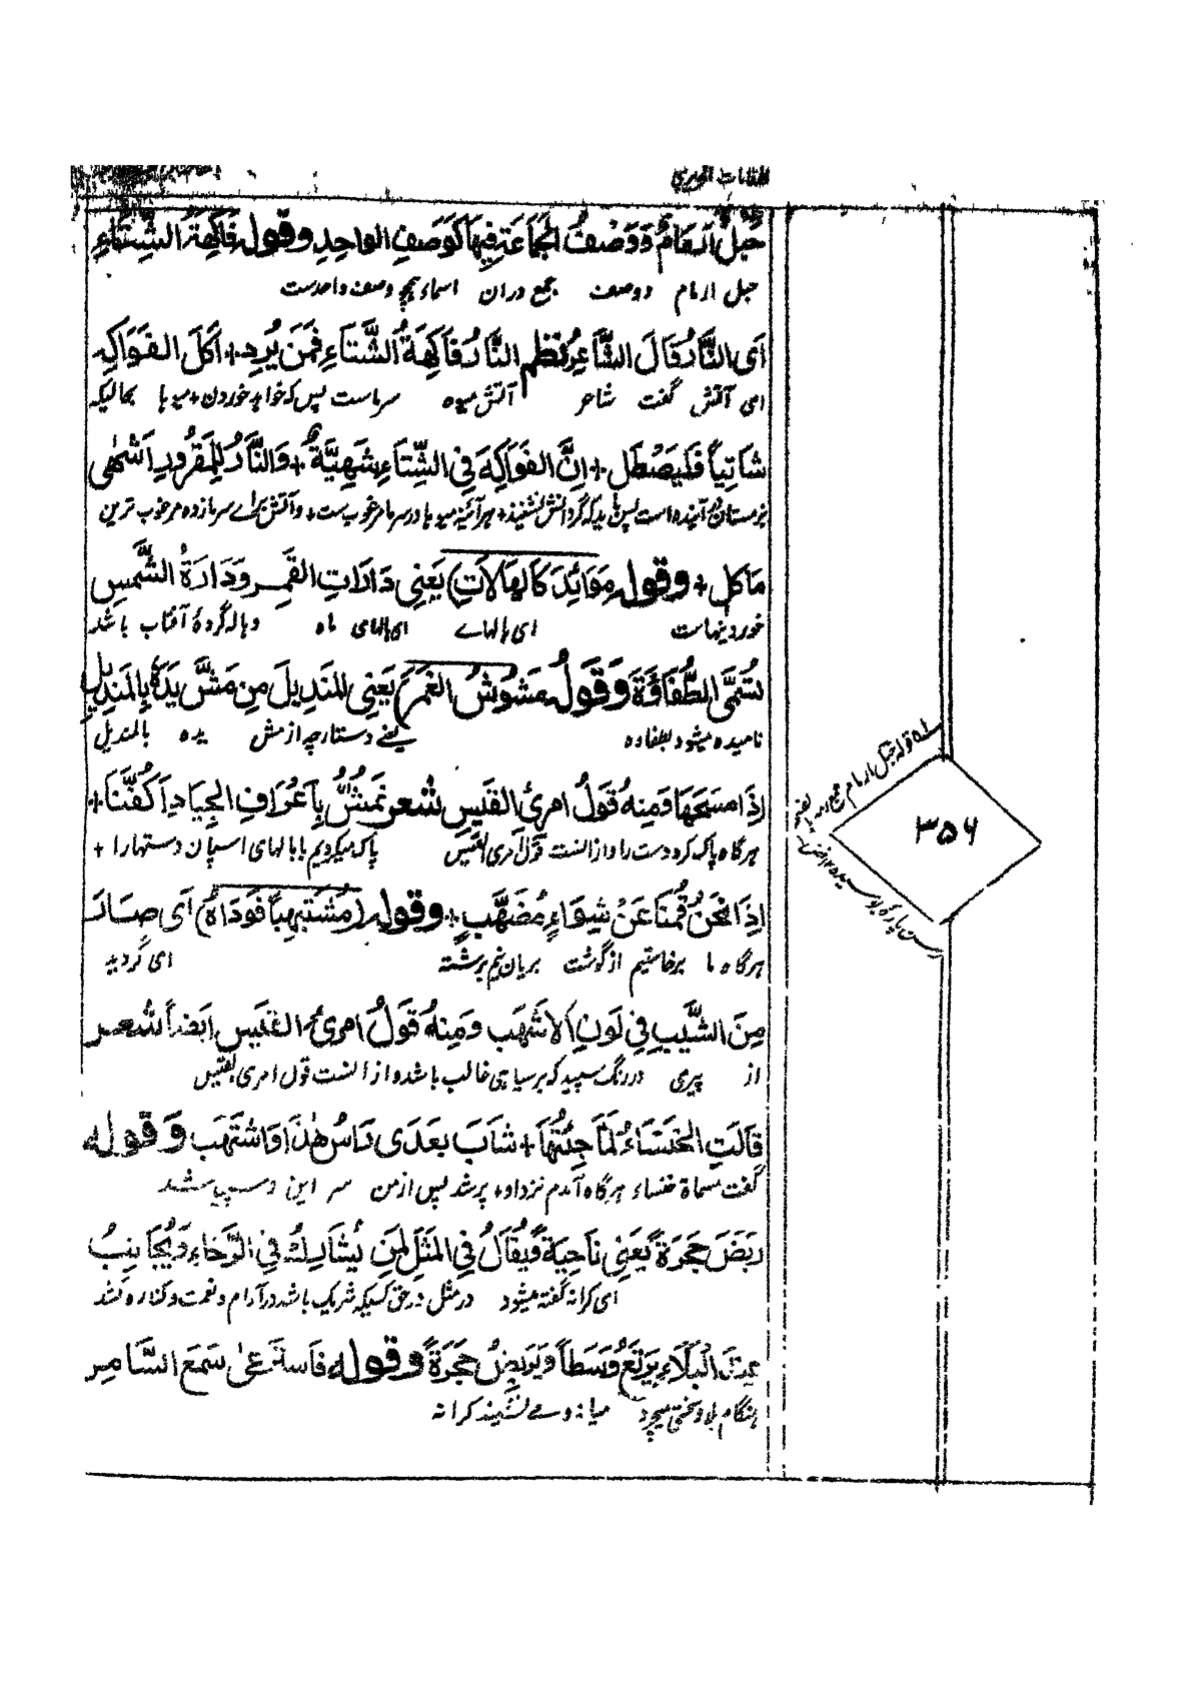 المقامات الحریری
حَبلٌ اَرمَامٌ وَوَصْفُ الجَمَاعَةِ فِيهَا كَوَصَفِ الوَاحِدِ وقوله فَاكِهَةُ الشِّتَاءِ
حبل ارمام ووصف جمع دران اسماء ہمچو وصف واحدست
اَى النَّارُ قَالَ الشَّاعِرُ نظم النَّارُ فَاكِهَةُ الشِّتَاءِ فَمَن يُرِد + اَكلَ الفَوَاكِهِ
ای آتش گفت شاعر آتش میوہ سرماست پس کہ خواہد خوردن + میوہا بحالیکہ
شَاتِياً فَليَصْطَلِ + اِنَّ الفَوَاكِهَ فِي الشِّتَاءِ شَهِيَّةٌ + وَالنَّارُ لِلمَقرُورِ اَشهٰى
ہرآئینہ میوہا در سرما مرغوب ست + وآتش برای سرمازدہ مرغوب ترین
مَاكلِ + وقوله مَوَائِدَ كَالهَالَاتِ) يَعنِي دَارَاتِ القَمَرِ وَدَارَةُ الشَّمسِ
خوردنیہاست ای ہالہاے ای ہالہای ماہ وہالہ گردۂ آفتاب باشد
تُسَمَّى الطُّفَاوَةَ وَقَولُه مَشُوشُ الغَمَرِ يَعنِي المنَدِيلَ مِن مَشَّ يَدَهُ بِالمَنِديلِ
نامیدہ میشود بطفاوہ یعنے دستارچہ از مش یدہ بالمندیل
اِذَا مَسَحَهَا وَمِنهُ قَولُ امرِئِ القَيسِ شعر نَمُشُّ بِاَعرَافِ الجِيَادِ اَكُفَّنَا +
ہرگاہ پاک کرد دست را وازانست قول امری القیس پاک میکردیم بابالہای اسپان دستہارا +
اِذَا نَحنُ قُمنَا عَن شِوَاءٍ مُضَهَّبٍ + وقوله (مُشتَهِباً فَودَاهُ) اَى صَارَ
ہرگاہ ما برخاستیم از گوشت بریان نیم برشتہ ای گردید
مِنَ الشَّيبِ فِي لَونِ الاَشهَبِ وَمِنهُ قَولُ امرِئ القَيسِ اَيضاً شعر
از پیری دررنگ سپید کہ برسیاہی غالب باشد وازانست قول امری القیس
قَالَتِ الخَنسَاءُ لَمَّا جِئتُهَا + شَابَ بَعدِى رَاسُ هٰذَا وَاشتَهَب وَقوله
گفت مسماۃ خنساء ہرگاہ آمدم نزد او + پر شد پس از من سر این وسپید شد
رَبَضَ حَجرَةً يَعنِي نَاحِيَةً وَيُقَالُ فِي المَثَلِ لِمَن يُشَارِكُ فِي الرَّخَاءِ وَيُجَانِبُ
ای کرانہ گفتہ میشود در مثل درحق کسیکہ شریک باشد درآرام ونعمت وکنارہ کند
عِندَ البَلَاءِ يَرتَعُ وَسَطاً وَيَربِضُ حَجَرَةً وقوله فَاستَرعىٰ سَمعَ السَّامِر
ہنگام بلا وسختی میچرد میانہ ومے نشیند کرانہ
۳۵۶
لہ قولہ حبل ارمام